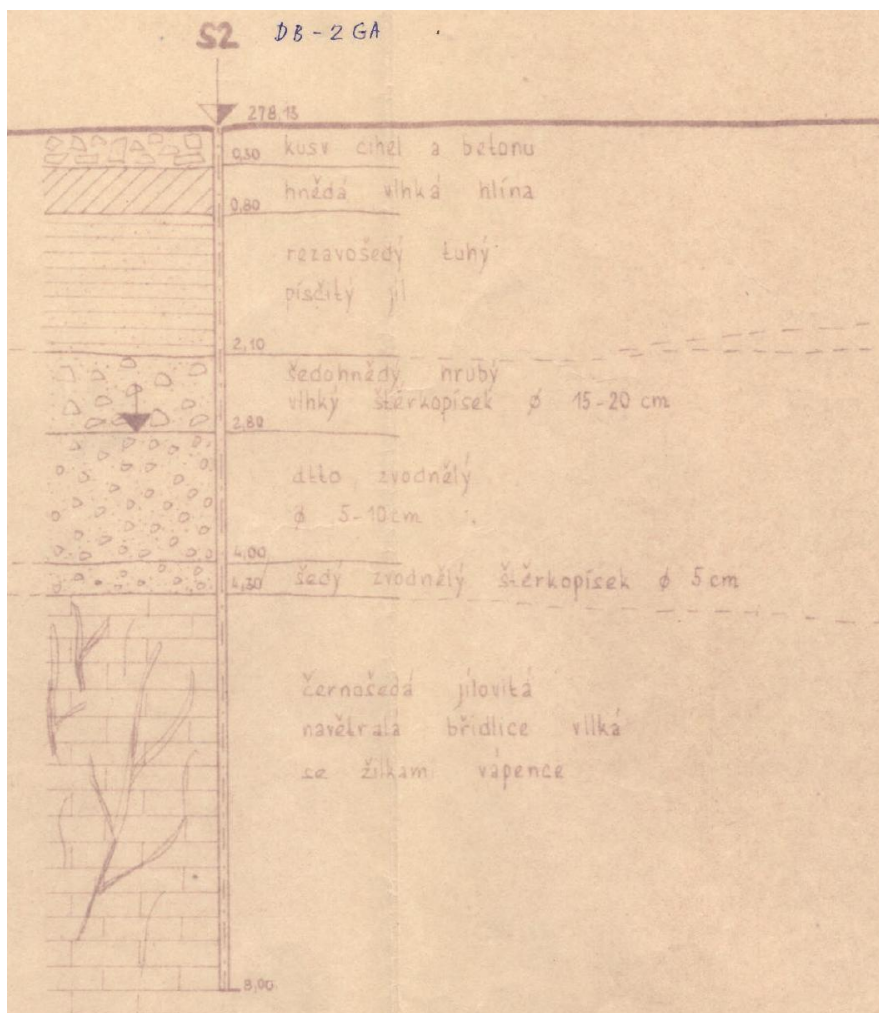 S2 DB-2GA
278,15
0,30 kusy cihel a betonu
hnědá vlhká hlína
0,80
rezavošedý tuhý
písčitý jíl
2,10
šedohnědý hrubý
vlhký štěrkopísek ø 15-20 cm
2,80
dtto zvodnělý
ø 5-10cm
4,00
4,30 šedý zvodnělý štěrkopísek ø 5 cm
černošedá jílovitá
navětralá břidlice vlhká
se žilkam vápence
8,00